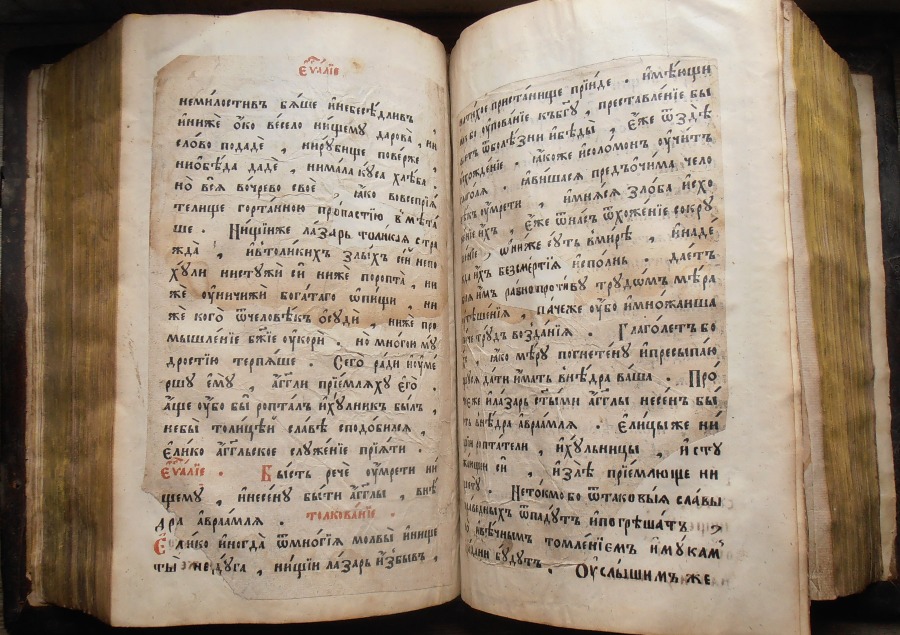 еѵⷢ҇алїе
немилостивъ бѧше инебесѣдливъ ,
ниниже ѻко весело нищемꙋ дарова , ни
слово подаде , нирꙋбище поверже ,
ниѻбѣда даде , нимала кꙋса хлѣба .
но всѧ вочрево свое , ꙗко вовсепрїѧ
телище гортанною пропастїю вметⷶа
ше . Нищїиже лазарь толикаѧ стра
жда , ивтоликихъ злыхъ сеи непо
хꙋли нистꙋжи си ниже поропта , ни
же оуничижи богатаго ѿпищи , ни
же кого ѿчеловѣкъ ѻсꙋди , ниже про
мышленїе бж҃їе оукори . но многои мꙋ
дростїю терпѧше . Сего ради иоуме
ршꙋ емꙋ , агг҃ли прїемлѧхꙋ его .
аще оубо бы ропталъ ихꙋлникъ былъ ,
небы толицеи славѣ сподобилсѧ ,
елико агг҃льское слꙋженїе прїѧти .
еѵⷢ҇алїе . Бысть рече оумрети ни
щемꙋ , инесенꙋ быти агг҃лы , внѣ
дра авраамлѧ . толкованїе .
Елико иногда ѿмногїѧ моавы инище
ты недꙋга , нищїи лазарь избывъ ,
тихїе пристанище прїиде . имѣющи
бо оупованїе къбг҃ꙋ , преставленїе бы
ѿболѣзни ибѣды , еже ѿздѣ
хожденїе . ꙗкоже исоломон оучитъ
глаголѧ . ꙗвишасѧ предъочима чело
оумрети , имнѧсѧ злоба исхо
ихъ , еже ѿнасъ ѿхоженїе сокрꙋ
ѡниже сꙋть вмирѣ , инаде
ихъ безсмертїѧ исполнь . даетъ
имъ равнопротивꙋ трꙋдомъ мѣра
ꙋтѣшенїѧ , пачеже оубо имножаиша
трꙋдъ возданїѧ . Глаголетъ бо
ꙗко мѣрꙋ погнетенꙋ ипресыпаю
дати имать внѣдра ваша . Про
еже илазарь ст҃ыми агг҃лы несенъ бы
внѣдра авраамлѧ . Елицыже ни
роптатели , ихꙋльницы , истꙋ
си , излѣ прїемлюще ни
щетꙋ . Нетокмобо ѿтаковыѧ славы
праведныхъ ѿпадꙋтъ ипогрешатъ ,
ивѣчнымъ томленїемъ имꙋкам
бꙋдꙋтъ . Оуслышимъ же